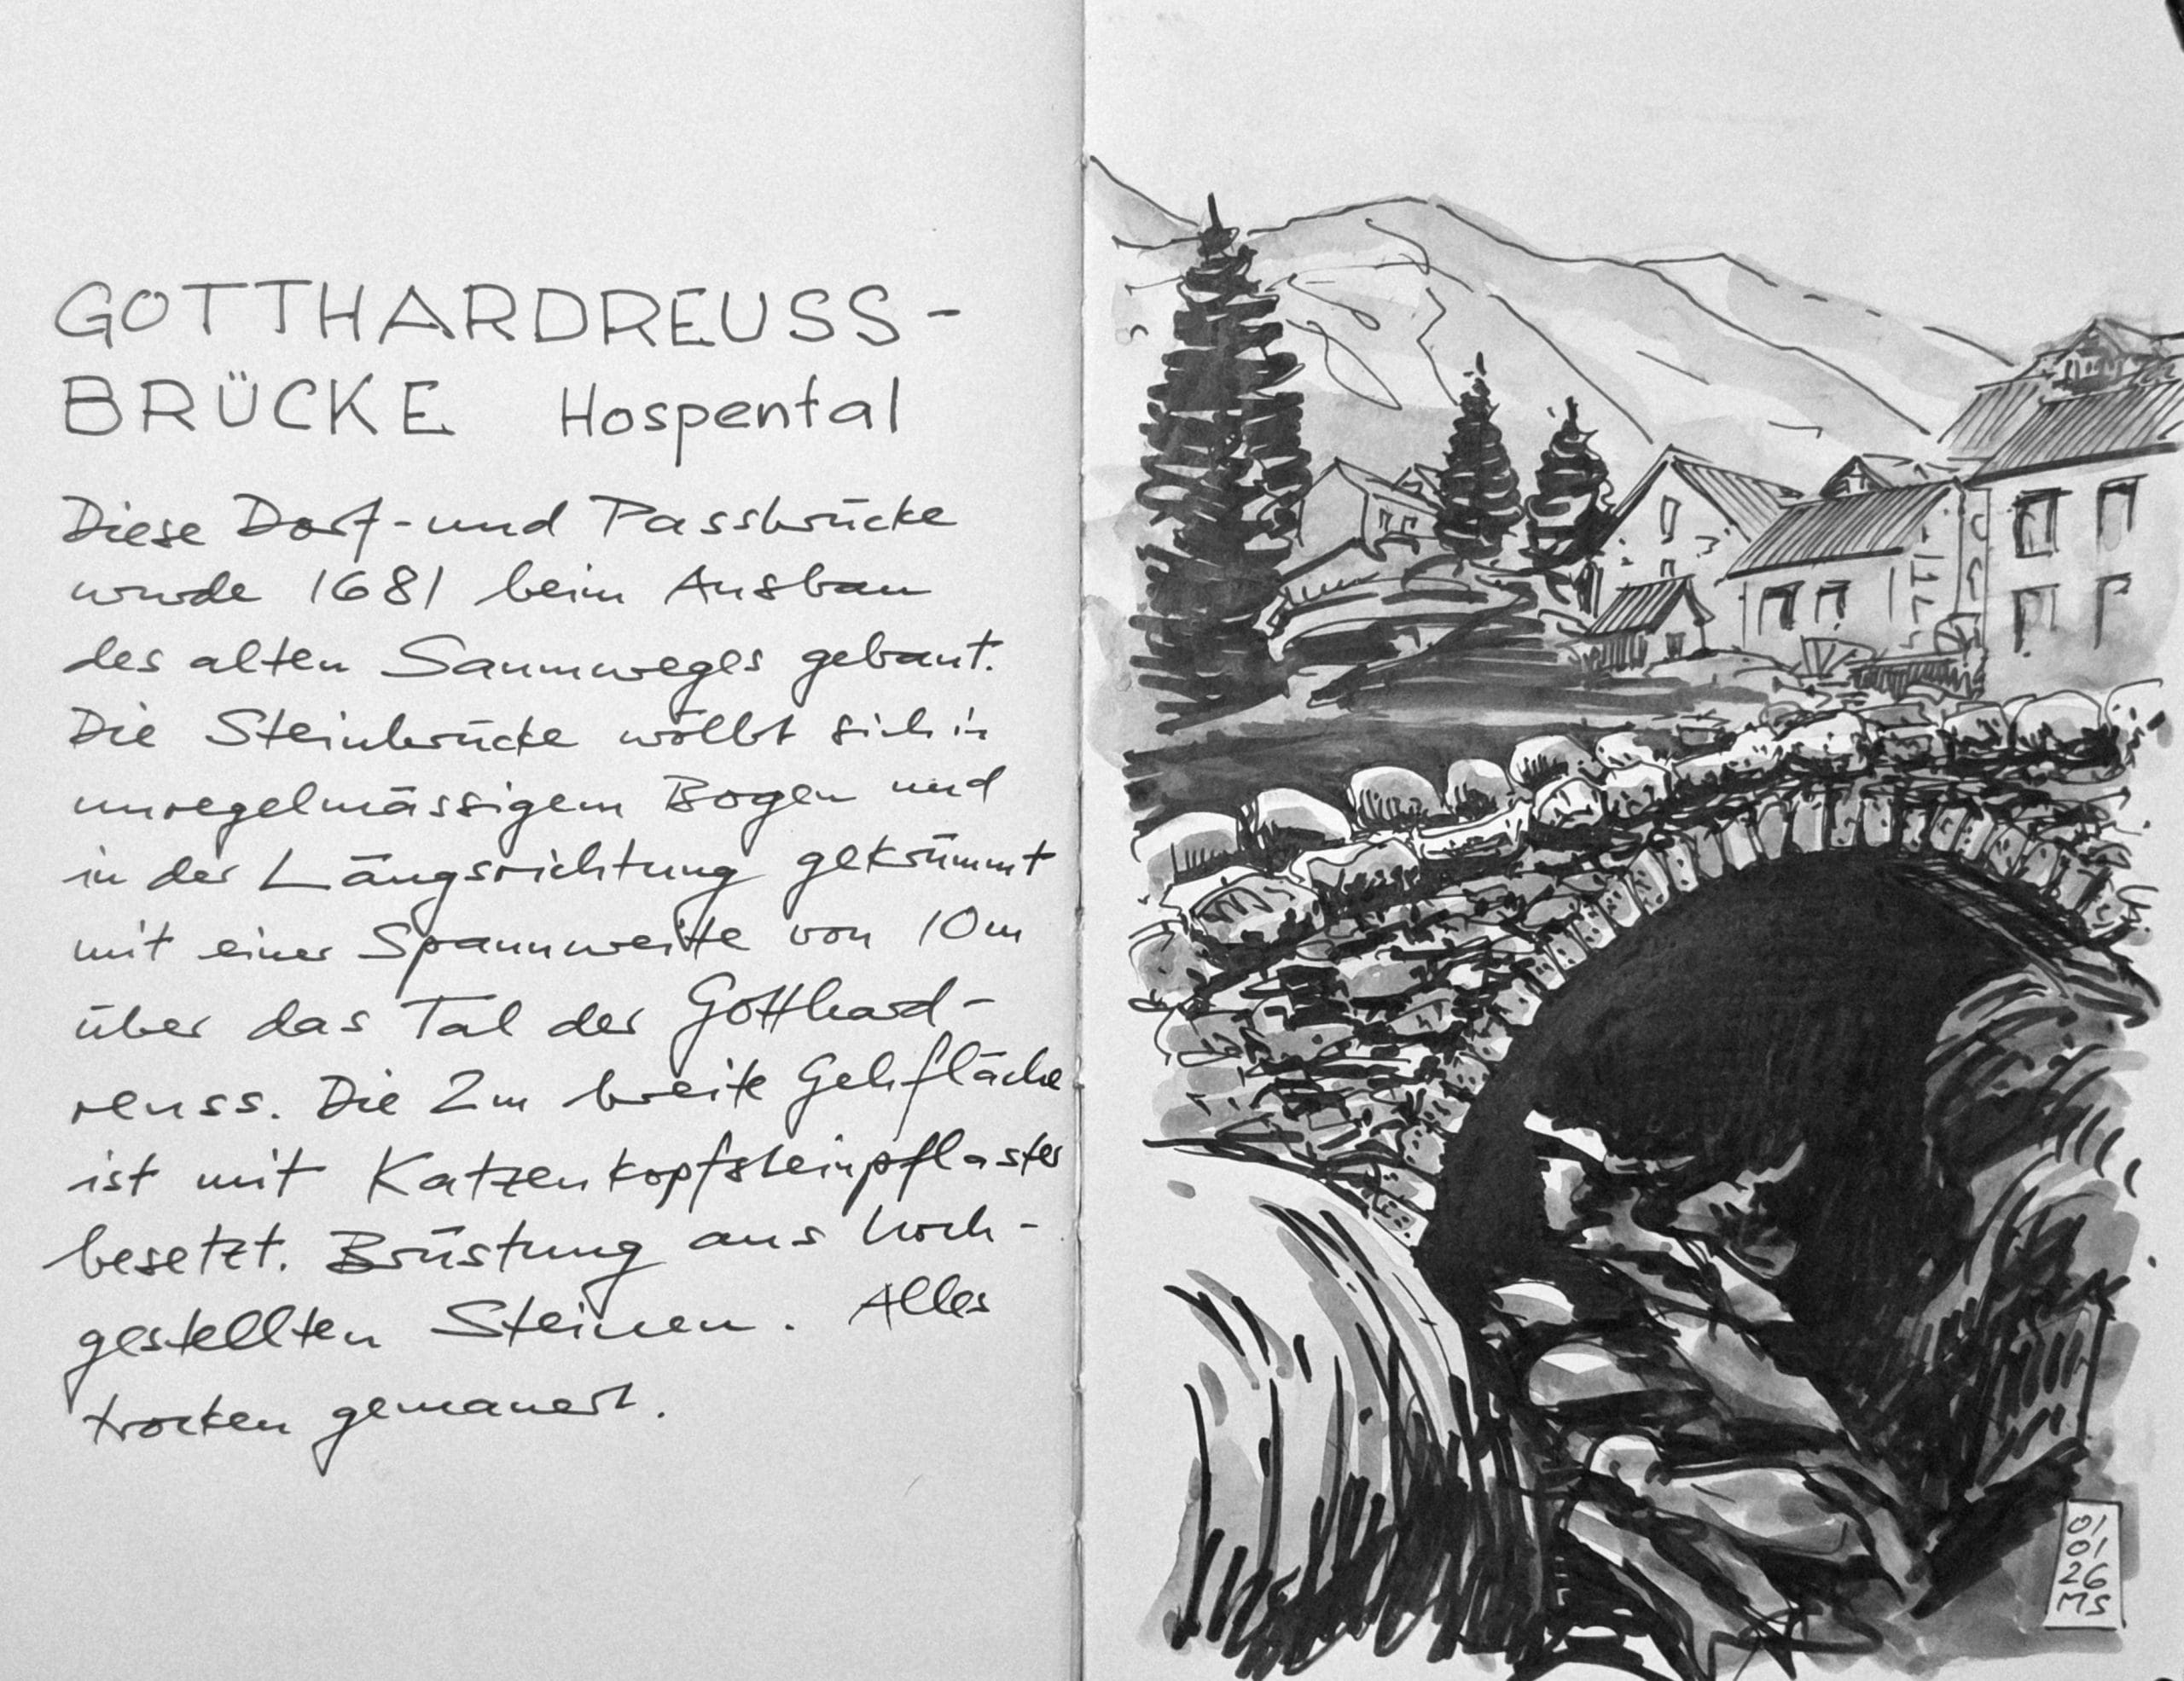 GOTTHARDREUSS-
BRÜCKE Hospental
Diese Dorf- und Passbrücke
wurde 1681 beim Ausbau
des alten Saumweges gebaut.
Die Steinbrücke wölbt sich in
unregelmässigem Bogen und
in der Längsrichtung gekrümmt
mit einer Spannweite von 10m
über das Tal der Gotthard-
reuss. Die 2m breite Gehfläche
ist mit Katzenkopfsteinpflaster
besetzt. Brüstung aus hoch-
gestellten Steinen. Alles
trocken gemauert.
01
01
26
MS